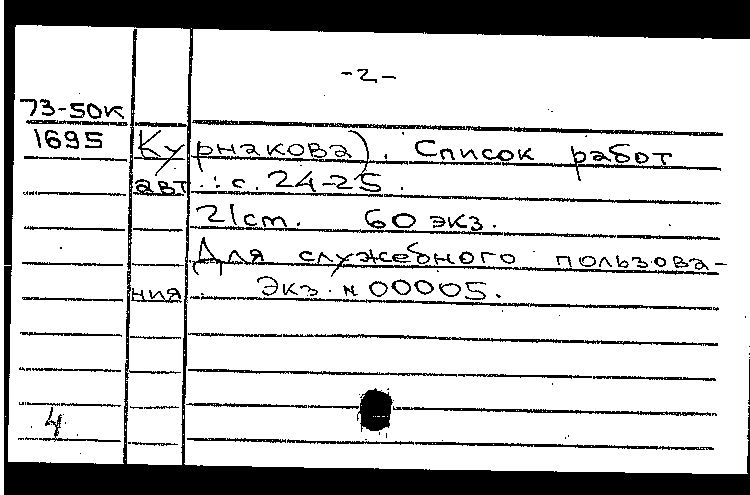 -2-
73-50К
1695 Курнакова). Список работ
авт.: с. 24-25.
21cm. 60 экз.
Для служебного пользова-
ния. Экз. № 00005.
4